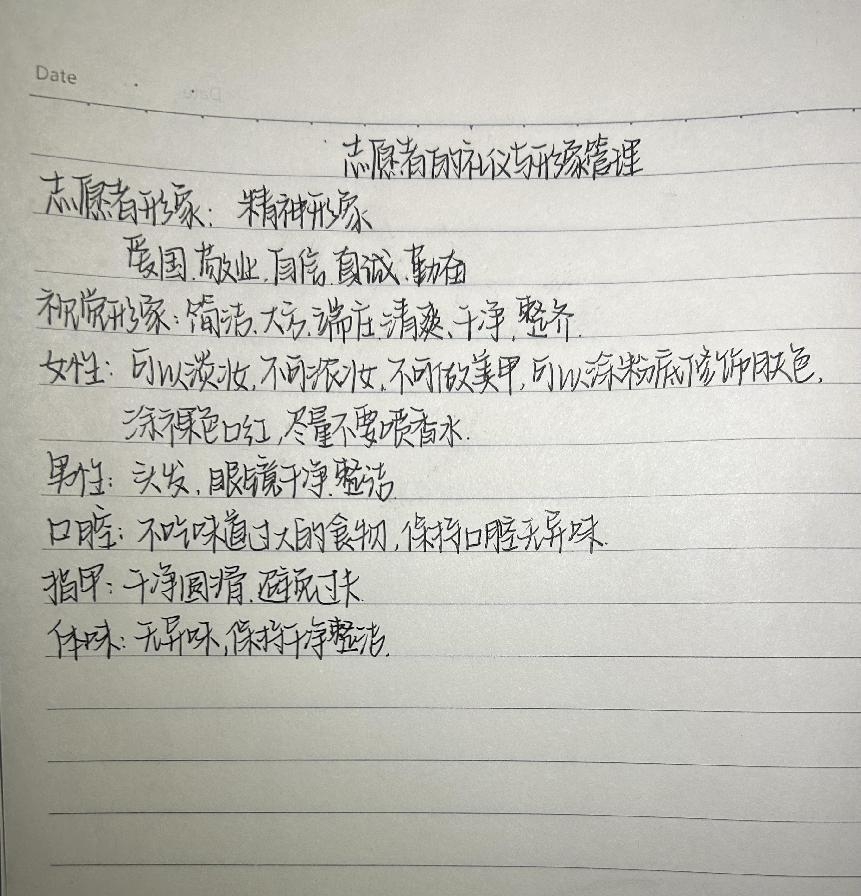 Date
志愿者的礼仪与形象管理
志愿者形象：精神形象
爱国、敬业、自信、真诚、勤奋
视觉形象：简洁、大方、端庄、清爽、干净、整齐.
女性：可以淡妆，不可浓妆，不可做美甲，可以涂粉底修饰肤色，
涂裸色口红，尽量不要喷香水.
男性：头发，眼镜干净、整洁
口腔：不吃味道过大的食物，保持口腔无异味.
指甲：干净圆滑、避免过长
体味：无异味，保持干净整洁.